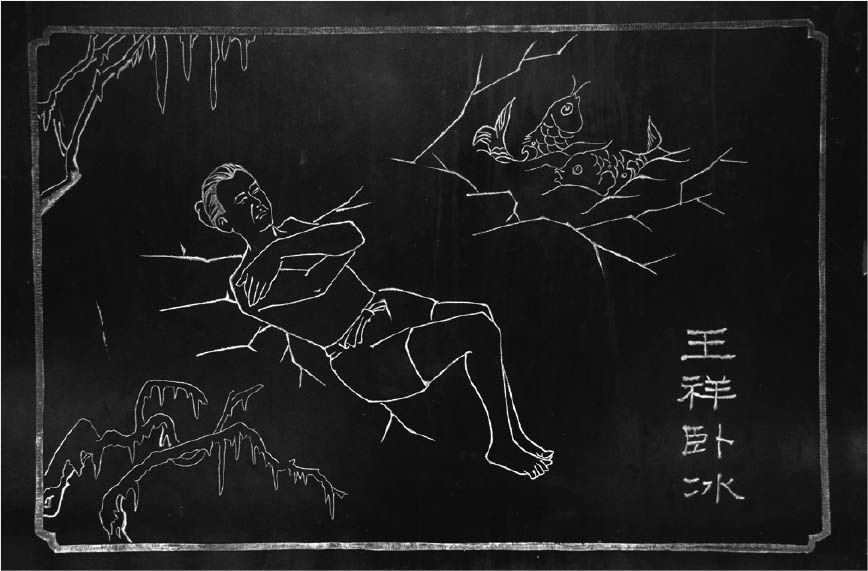 王祥卧冰